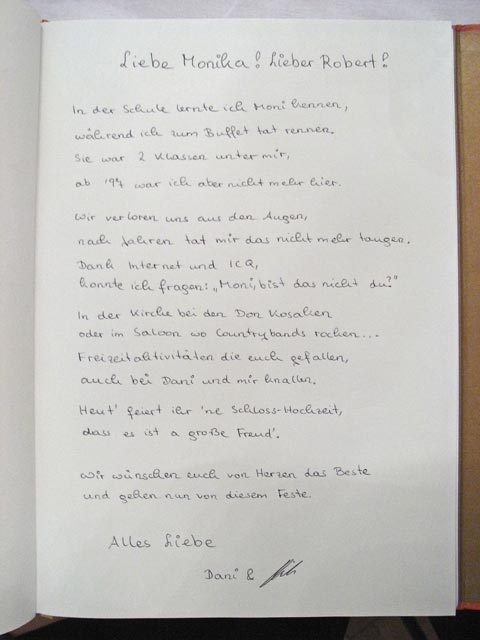 Liebe Monika! Lieber Robert!
In der Schule lernte ich Moni kennen,
während ich zum Buffet tat rennen.
Sie war 2 Klassen unter mir,
ab '94 war ich aber nicht mehr hier.
Wir verloren uns aus den Augen,
nach Jahren tat mir das nicht mehr taugen.
Dank Internet und ICQ,
konnte ich fragen: „Moni, bist das nicht du?"
In der Kirche bei den Don Kosaken
oder im Saloon wo Countrybands rocken...
Freizeitaktivitäten die euch gefallen,
auch bei Dani und mir knallen.
Heut' feiert ihr 'ne Schloss-Hochzeit,
dass es ist a große Freud'.
Wir wünschen euch von Herzen das Beste
und gehen nun von diesem Feste.
Alles Liebe
Dani &